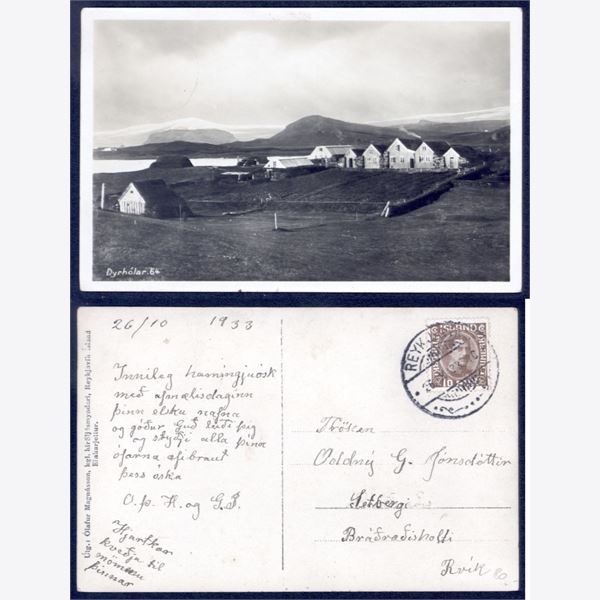 Dyrhólar. 64
26/10 1933
Innileg hamingjuósk
með afmælisdaginn
þinn elsku nafna
og góður Guð leiði þig
og styðji alla þína
ófarna æfibraut
þess óska
O.þ. H. og G.J.
Hjartkær
kveðja til
mömmu
þinnar
Útg.: Ólafur Magnússon, kgl. hirðljósmyndari, Reykjavík Island
Einkaréttur.
ISLAND
10
REYKJAVÍK
Fröken
Oddný G. Jónsdóttir
Setbergi
Bráðræðisholti
Rvík
80